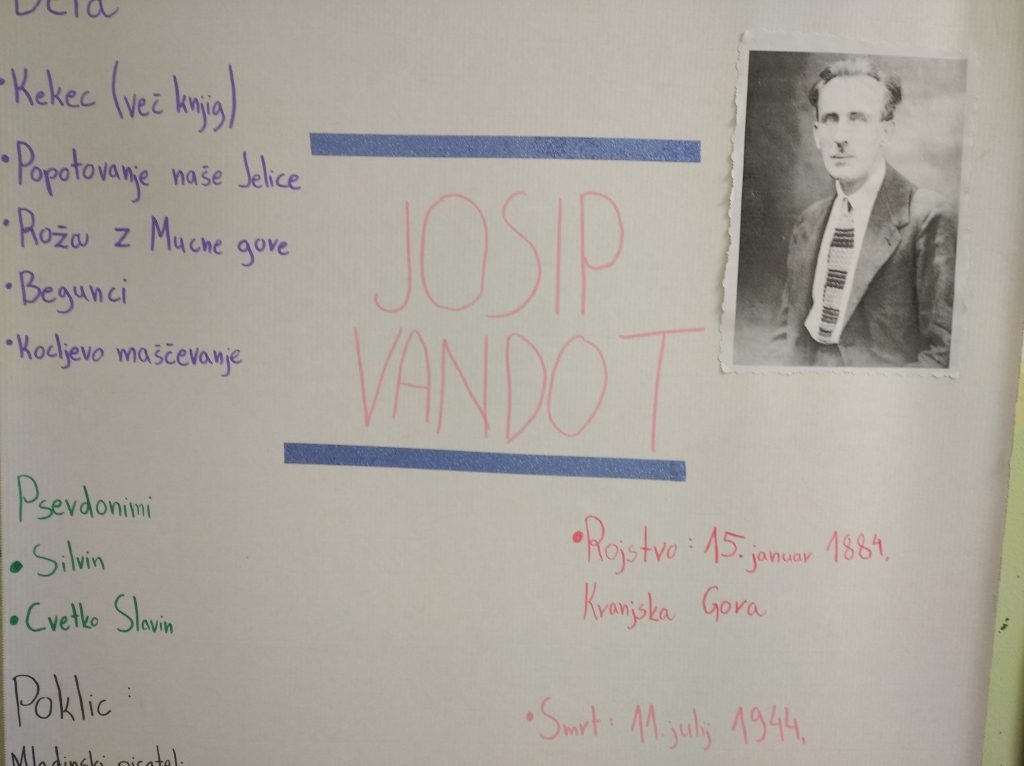 Dela
• Kekec (več knjig)
• Popotovanje naše Jelice
• Roža z Mucne gore
• Begunci
• Kocljevo maščevanje
JOSIP
VANDOT
Psevdonimi
• Silvin
• Cvetko Slavin
Poklic:
Mladinski pisatelj
• Rojstvo: 15. januar 1884,
Kranjska Gora
• Smrt: 11. julij 1944,